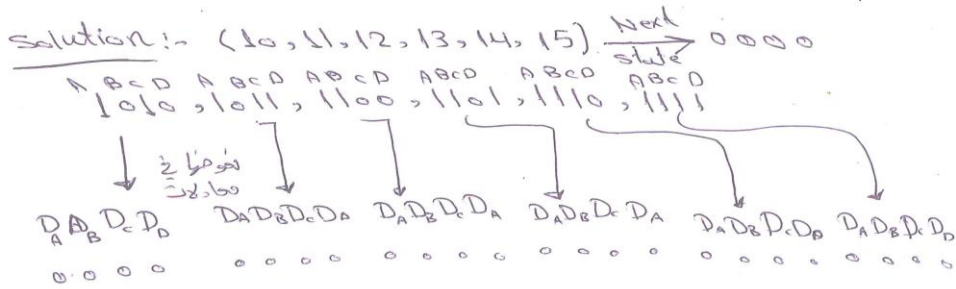 Solution:- (10, 11, 12, 13, 14, 15) Next state → 0000
A B C D A B C D A B C D A B C D A B C D A B C D
1010, 1011, 1100, 1101, 1110, 1111
DA DB DC DD DA DB DC DA DA DB DC DA DA DB DC DA DA DB DC DD DA DB DC DD
0 0 0 0 0 0 0 0 0 0 0 0 0 0 0 0 0 0 0 0 0 0 0 0